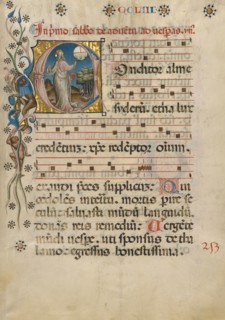 CCLIII
In primo sabbo de adventu. ad vespas. ym.
Conditor alme
siderum. etha lux
credentium: xpe redemptor oium.
exaudi preces supplicum: Qui
condolens interitu. mortis pire se
culum: salvasti mundum languidum.
donans reis remedium: Vergente
mundi vespe. uti sponsus de tha
lamo: egressus honestissima
253